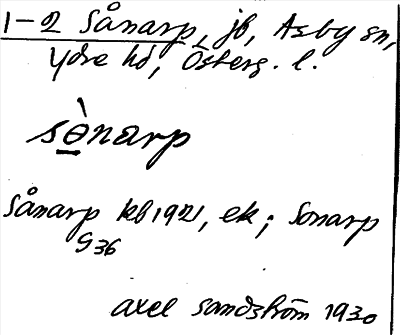 1-2 Sånarp, jb, Asby sn,
Ydre hd, Österg. l.
sə̀narp
Sånarp kb 1921, ek; Sonarp
S36
Axel Sandström 1930